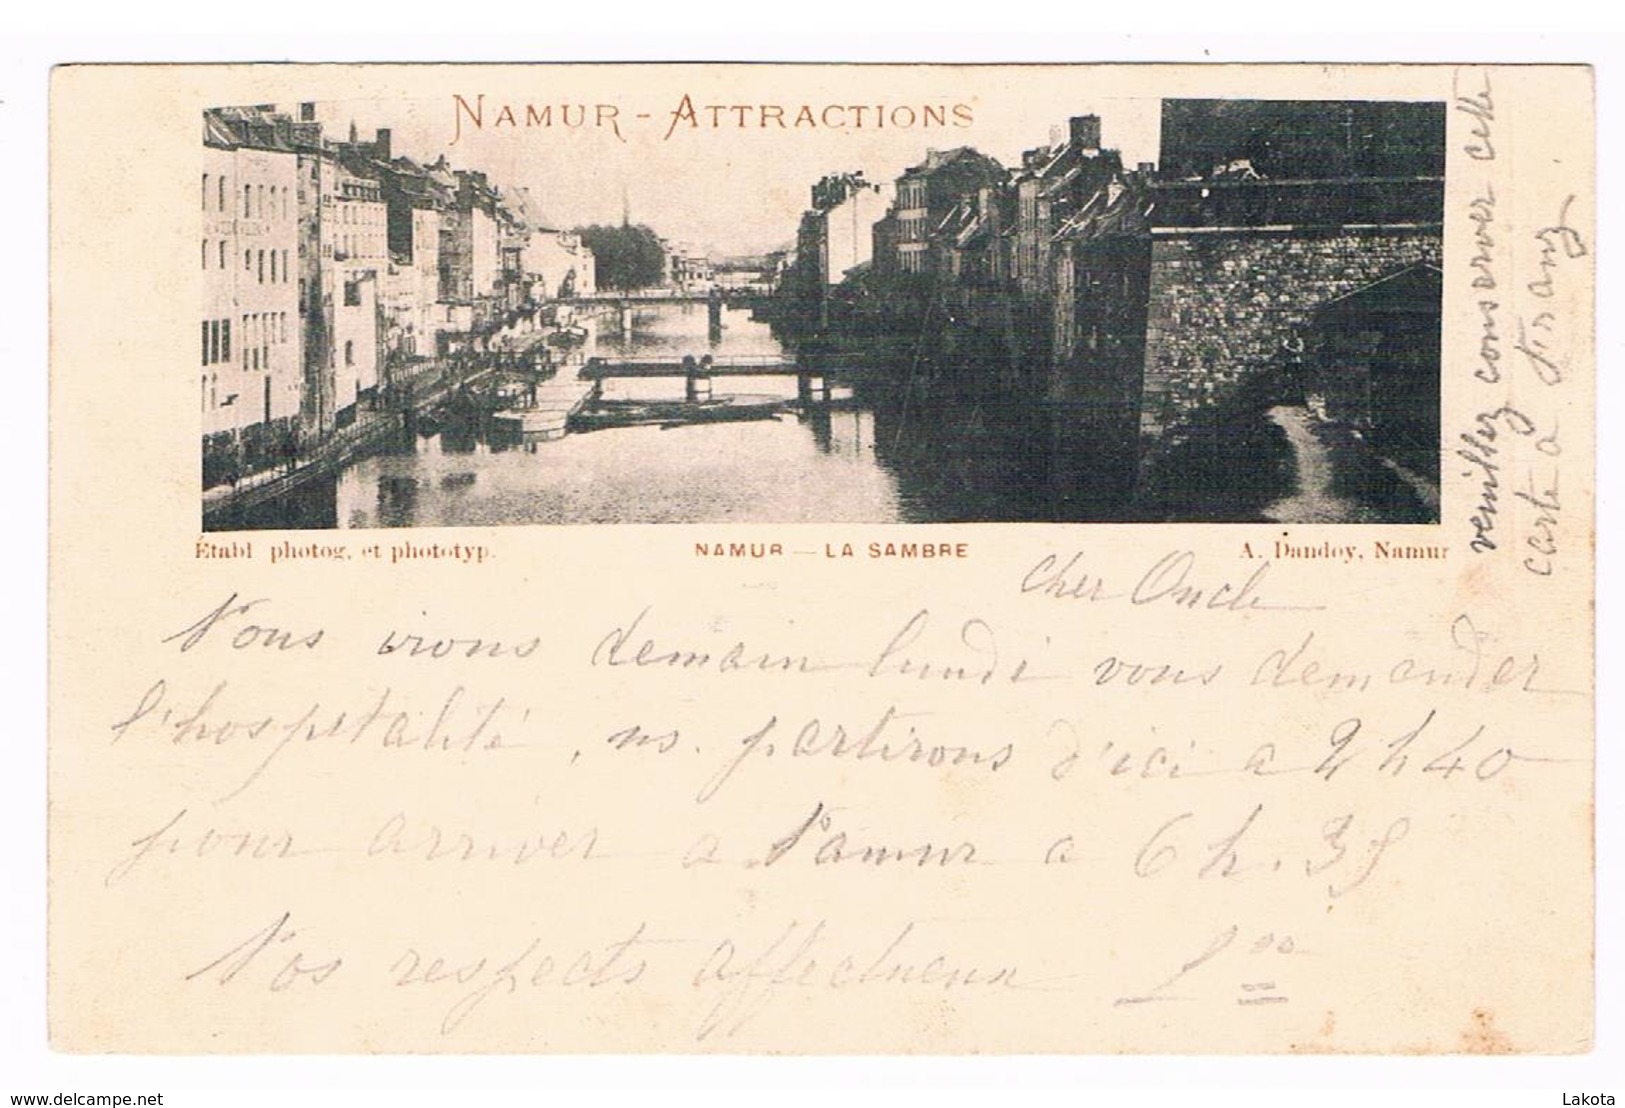 NAMUR - ATTRACTIONS
Établ photog. et phototyp.
NAMUR — LA SAMBRE
A. Dandoy, Namur
veuillez conserver cette
carte à
cher Oncle
Nous irons demain lundi vous demander
l'hospitalité, ns. partirons d'ici a 2 h 40
pour arriver a Namur a 6 h. 35
Nos respects affectueux
www.delcampe.net
Lakota